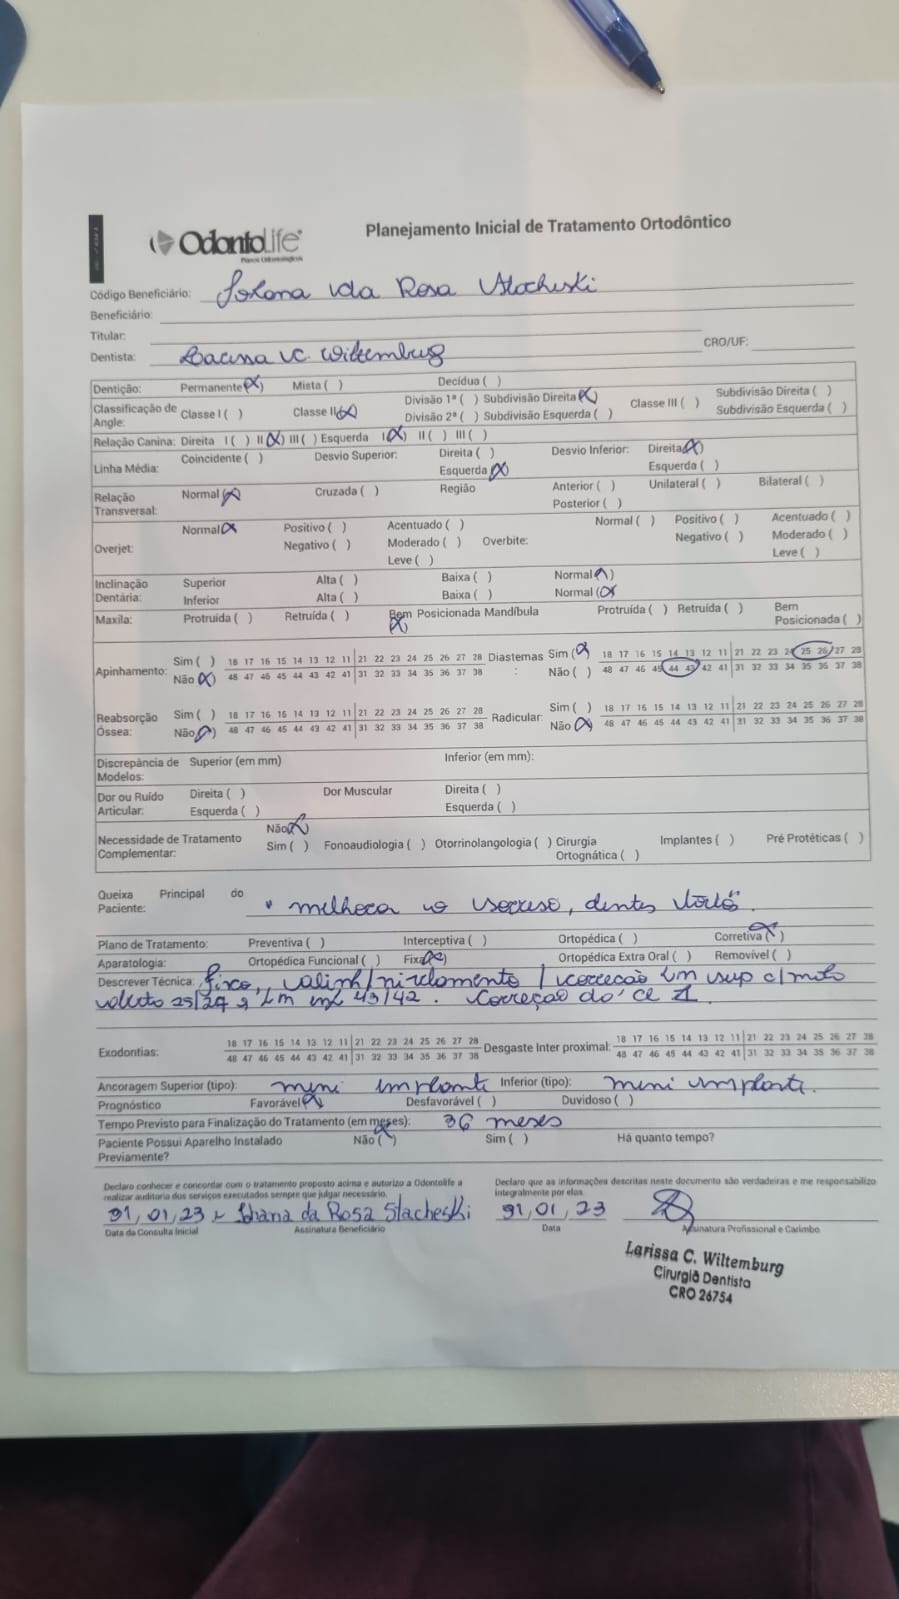 OdontoLife
Planos Odontológicos
Planejamento Inicial de Tratamento Ortodôntico
Código Beneficiário: da Rosa Stacheski
Beneficiário:
Titular:
Dentista: Larissa C. Wiltemburg CRO/UF:
Dentição: Permanente (X) Mista ( ) Decídua ( )
Classificação de Angle: Classe I ( ) Classe II (X) Divisão 1ª ( ) Subdivisão Direita (X) Classe III ( ) Subdivisão Direita ( )
Divisão 2ª ( ) Subdivisão Esquerda ( ) Subdivisão Esquerda ( )
Relação Canina: Direita I ( ) II (X) III ( ) Esquerda I (X) II ( ) III ( )
Linha Média: Coincidente ( ) Desvio Superior: Direita ( ) Desvio Inferior: Direita (X)
Esquerda (X) Esquerda ( )
Relação Transversal: Normal (X) Cruzada ( ) Região Anterior ( ) Unilateral ( ) Bilateral ( )
Posterior ( )
Overjet: Normal (X) Positivo ( ) Acentuado ( ) Overbite: Normal ( ) Positivo ( ) Acentuado ( )
Negativo ( ) Moderado ( ) Negativo ( ) Moderado ( )
Leve ( ) Leve ( )
Inclinação Dentária: Superior Alta ( ) Baixa ( ) Normal (X)
Inferior Alta ( ) Baixa ( ) Normal (X)
Maxila: Protruída ( ) Retruída ( ) Bem Posicionada (X) Mandíbula Protruída ( ) Retruída ( ) Bem Posicionada ( )
Apinhamento: Sim ( ) 18 17 16 15 14 13 12 11 21 22 23 24 25 26 27 28 Diastemas: Sim (X) 18 17 16 15 14 13 12 11 21 22 23 24 25 26 27 28
Não (X) 48 47 46 45 44 43 42 41 31 32 33 34 35 36 37 38 Não ( ) 48 47 46 45 44 43 42 41 31 32 33 34 35 36 37 38
Reabsorção Óssea: Sim ( ) 18 17 16 15 14 13 12 11 21 22 23 24 25 26 27 28 Radicular: Sim ( ) 18 17 16 15 14 13 12 11 21 22 23 24 25 26 27 28
Não (X) 48 47 46 45 44 43 42 41 31 32 33 34 35 36 37 38 Não (X) 48 47 46 45 44 43 42 41 31 32 33 34 35 36 37 38
Discrepância de Modelos: Superior (em mm) Inferior (em mm):
Dor ou Ruído Articular: Direita ( ) Dor Muscular Direita ( )
Esquerda ( ) Esquerda ( )
Necessidade de Tratamento Complementar: Não (X)
Sim ( ) Fonoaudiologia ( ) Otorrinolangologia ( ) Cirurgia Ortognática ( ) Implantes ( ) Pré Protéticas ( )
Queixa Principal do Paciente: " melhorar o sorriso, dentes tortos"
Plano de Tratamento: Preventiva ( ) Interceptiva ( ) Ortopédica ( ) Corretiva (X)
Aparatologia: Ortopédica Funcional ( ) Fixa (X) Ortopédica Extra Oral ( ) Removível ( )
Descrever Técnica: fixo, alinh/nivelamento / correcão Lm sup c/
25/ Lm inf 43/42. Correção do cl
Exodontias: 18 17 16 15 14 13 12 11 21 22 23 24 25 26 27 28 Desgaste Inter proximal: 18 17 16 15 14 13 12 11 21 22 23 24 25 26 27 28
48 47 46 45 44 43 42 41 31 32 33 34 35 36 37 38 48 47 46 45 44 43 42 41 31 32 33 34 35 36 37 38
Ancoragem Superior (tipo): mini implante Inferior (tipo): mini implante.
Prognóstico Favorável (X) Desfavorável ( ) Duvidoso ( )
Tempo Previsto para Finalização do Tratamento (em meses): 36 meses
Paciente Possui Aparelho Instalado Previamente? Não (X) Sim ( ) Há quanto tempo?
Declaro conhecer e concordar com o tratamento proposto acima e autorizo a Odontolife a
realizar auditoria dos serviços executados sempre que julgar necessário.
Declaro que as informações descritas neste documento são verdadeiras e me responsabilizo
integralmente por elas.
31, 01, 23 da Rosa Stacheski 31, 01, 23
Data da Consulta Inicial Assinatura Beneficiário Data Assinatura Profissional e Carimbo
Larissa C. Wiltemburg
Cirurgiã Dentista
CRO 26754